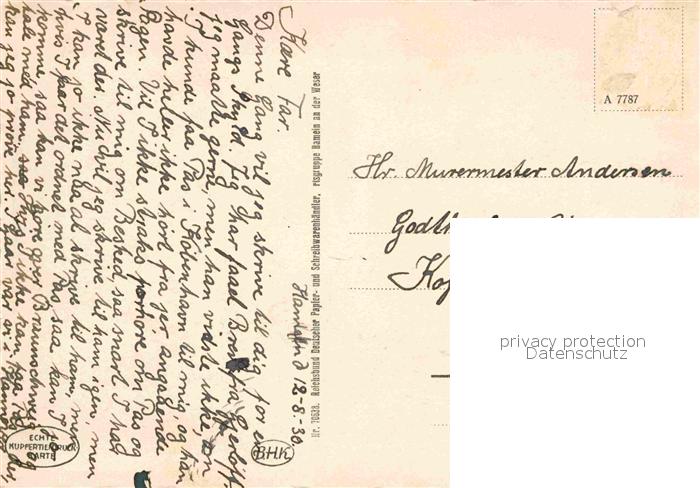 Kære Far.
Denne Gang vil jeg skrive til dig, for en
Gangs Skyld. Jeg har faaet Brev fra
jeg maatte gerne, men han vidste ikke om
I kunde faa Pas i København til mig, og han
havde heller ikke hørt fra jer angaaende
Sagen. Vil I ikke straks om Pas og
skrive til mig om Besked saa snart I had
været der. Nu vil jeg skrive til ham igen, men
I kan jo ikke naa at skrive til ham, men
hvis I faar det ordnet med Pas, saa kan I
komme, saa kan vi gøre
tale med ham,
kan jeg jo prøve her. I gaar var vi i
12-8-30.
Nr. 70638. Reichsbund Deutscher Papier- und Schreibwarenhändler, risgruppe Hameln an der Weser
ECHTE
KUPFERTIEFDRUCK
KARTE
BHK
A 7787
Hr. Murermester Andersen
privacy protection
Datenschutz